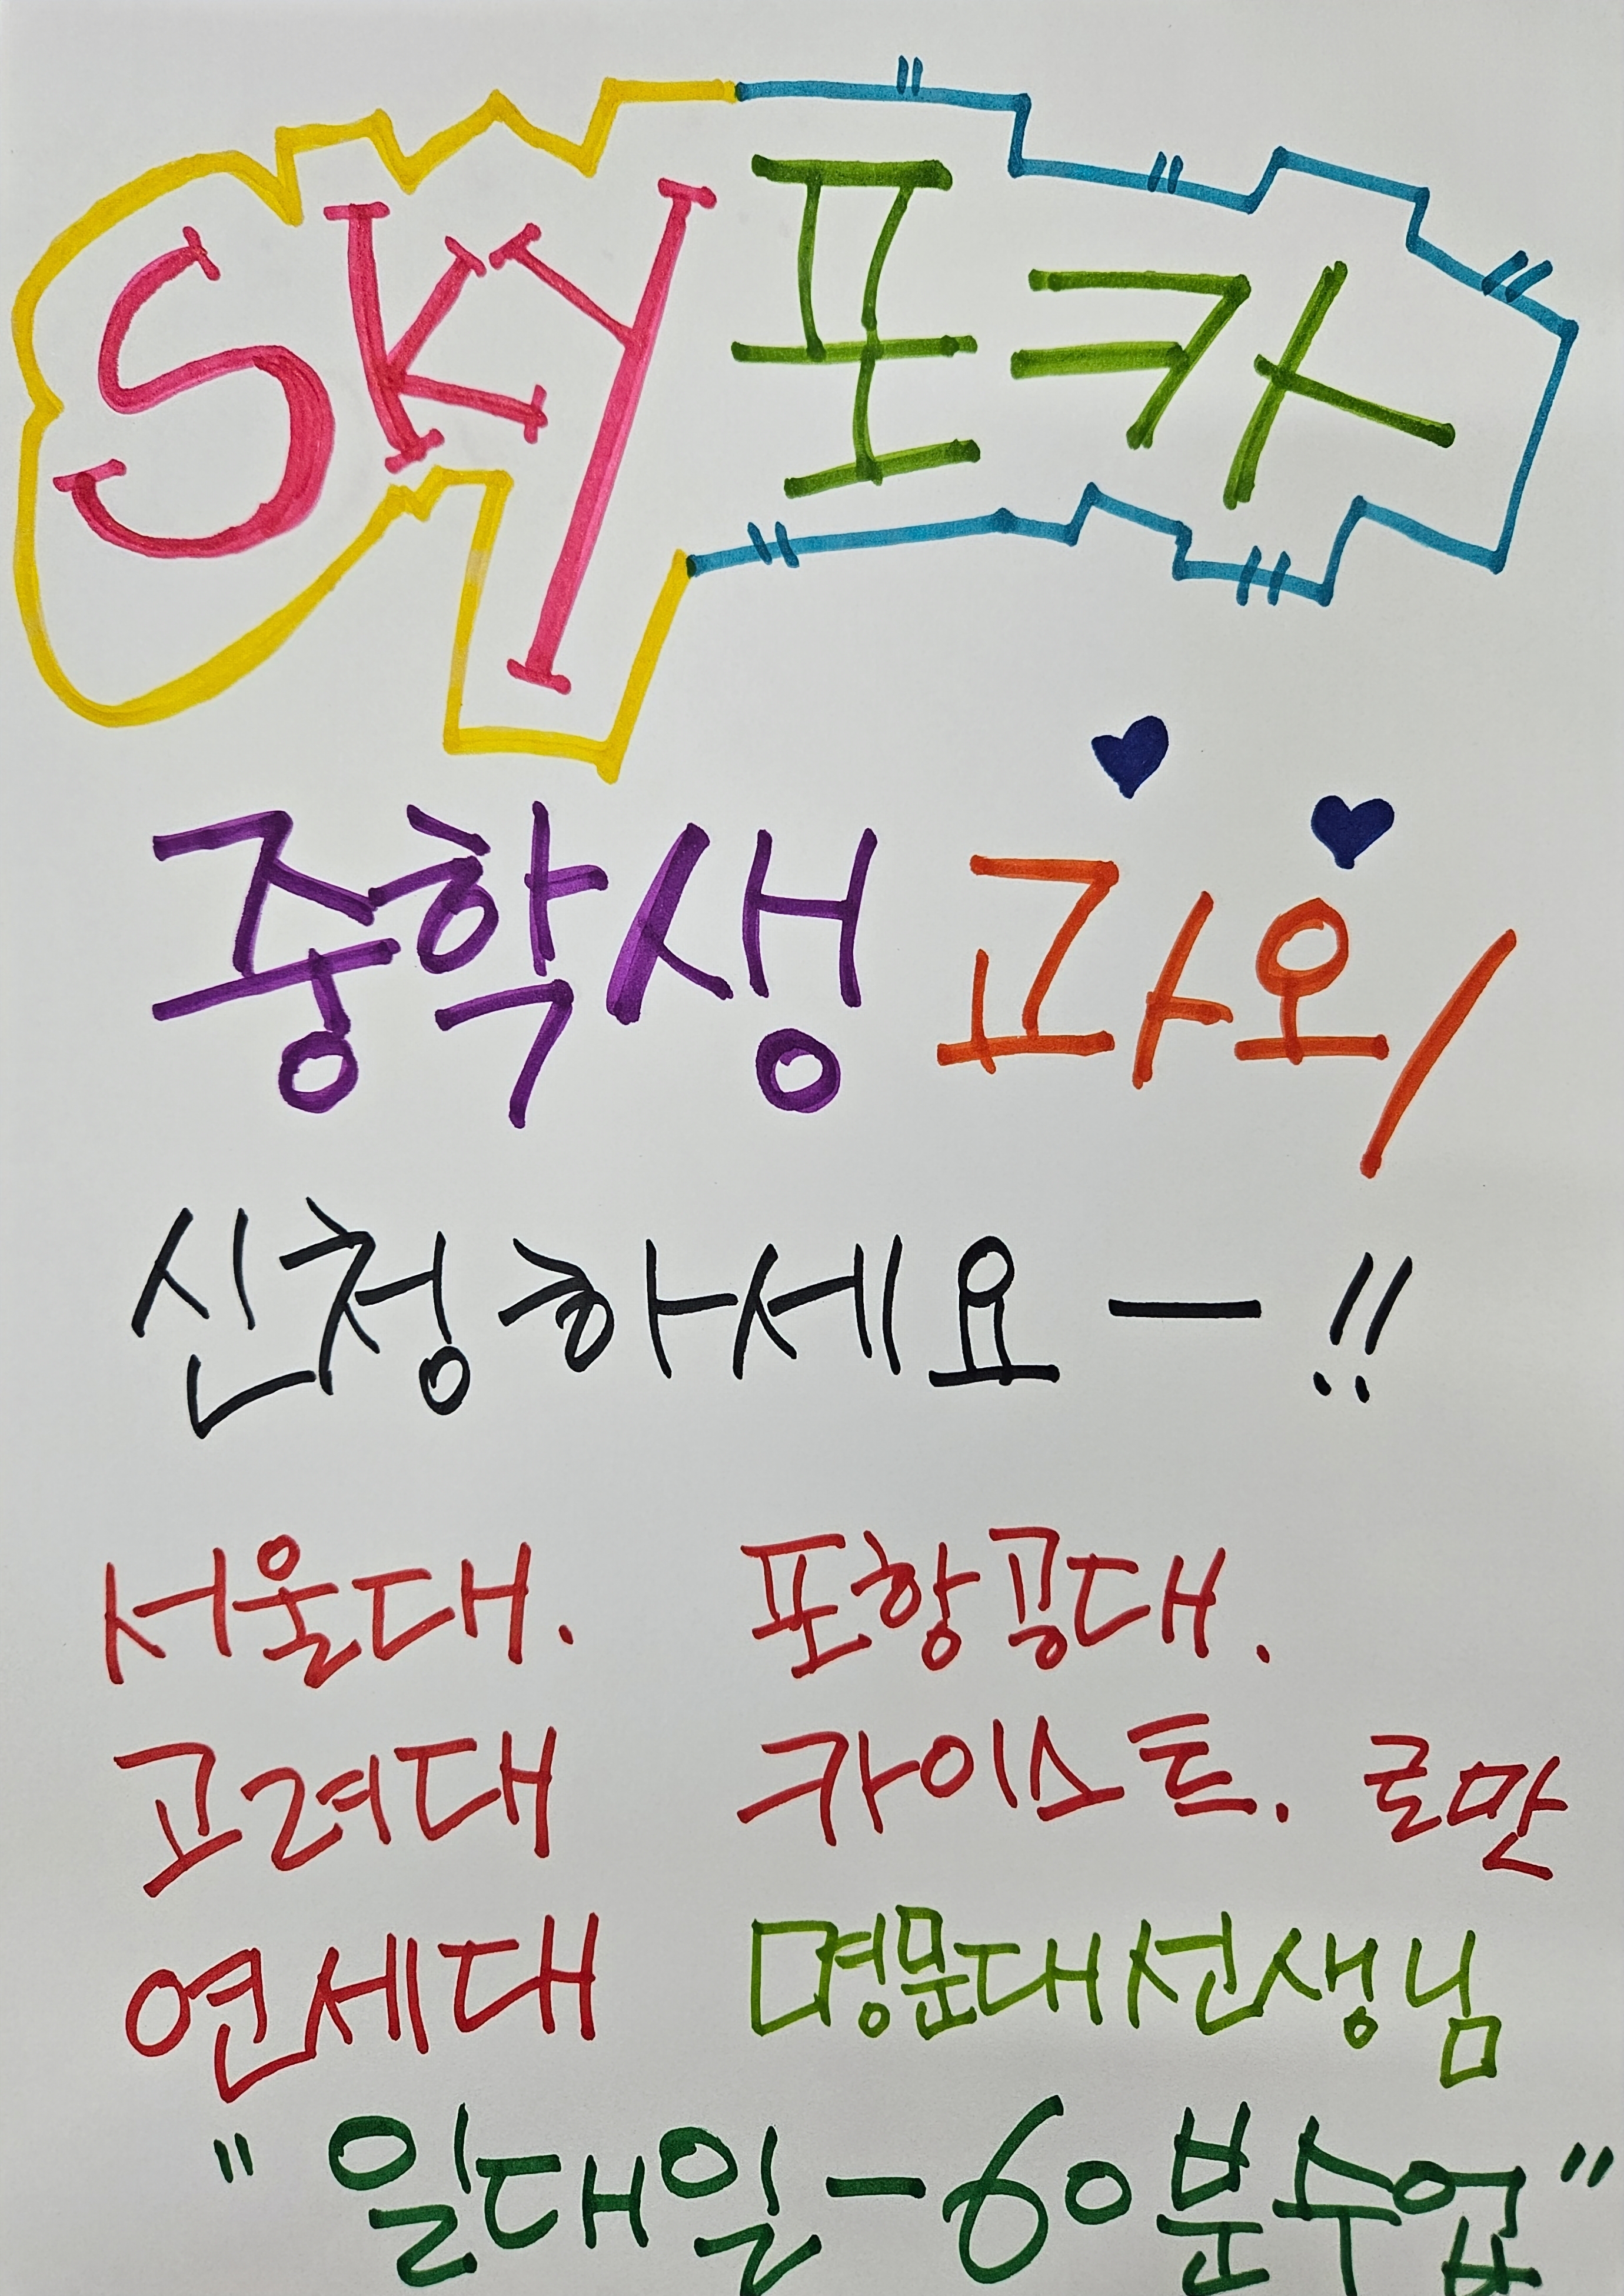 SKY 포카
중학생 과외
신청하세요 — !!
서울대. 포항공대.
고려대 카이스트. 로만
연세대 명문대선생님
" 일대일 - 60분수업 "